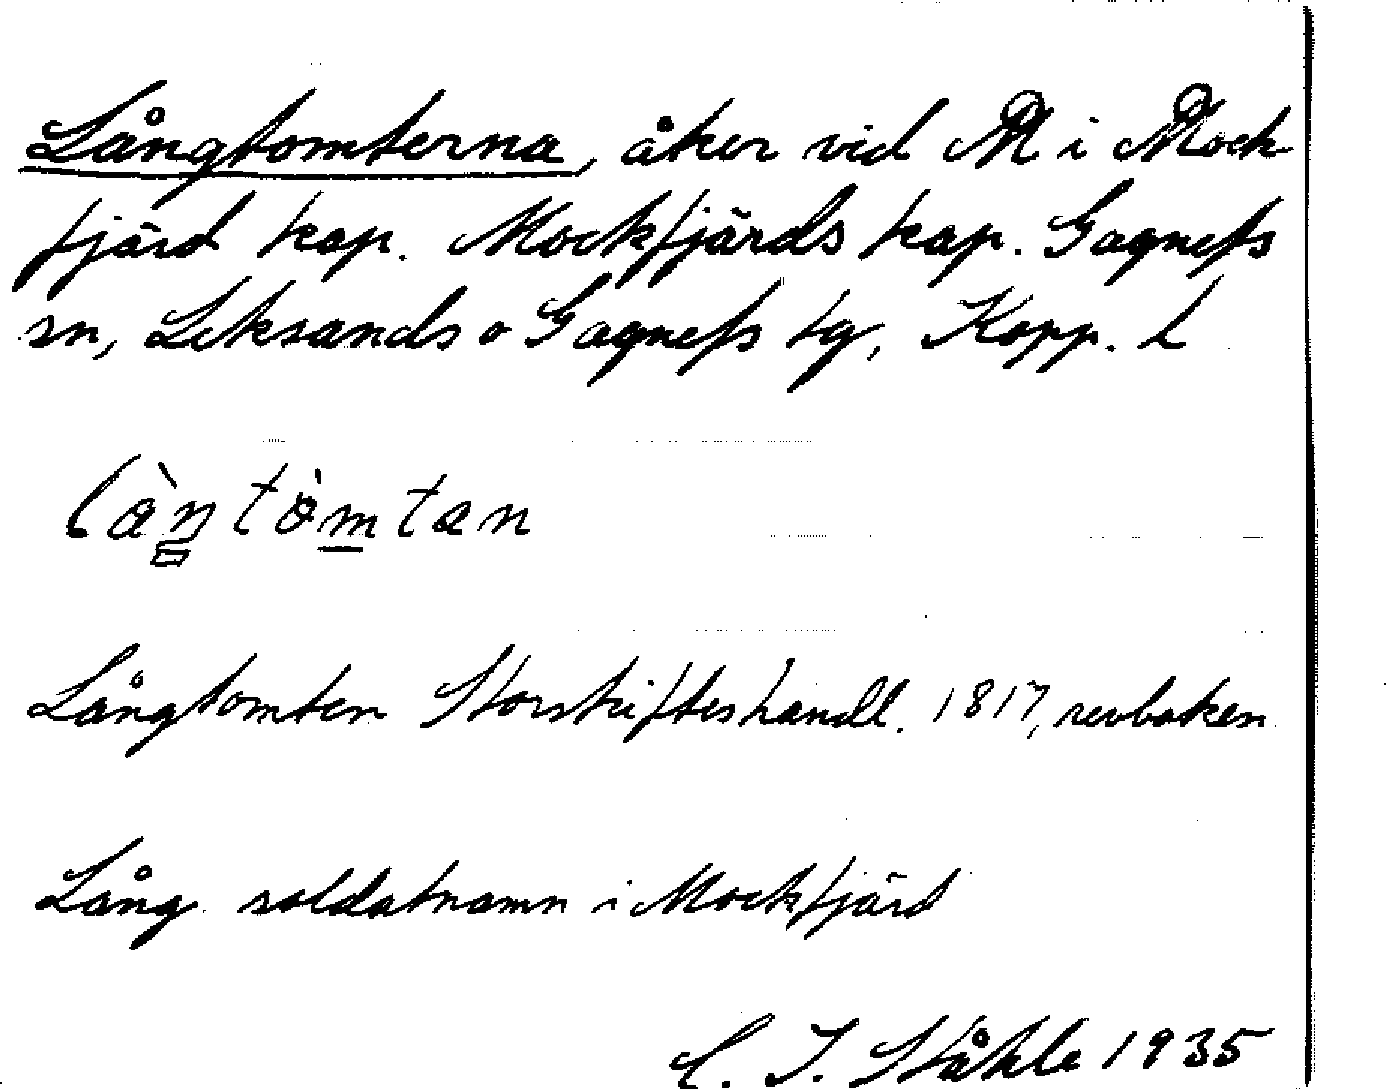 Långtomterna, åker vid M i Mock-
fjärd kap. Mockfjärds kap. Gagnefs
sn, Leksands o Gagnefs tg, Kopp. l
Långtomten Storskifteshandl. 1817, revboken
Lång soldatnamn i Mockfjärd
C. I. Ståhle 1935